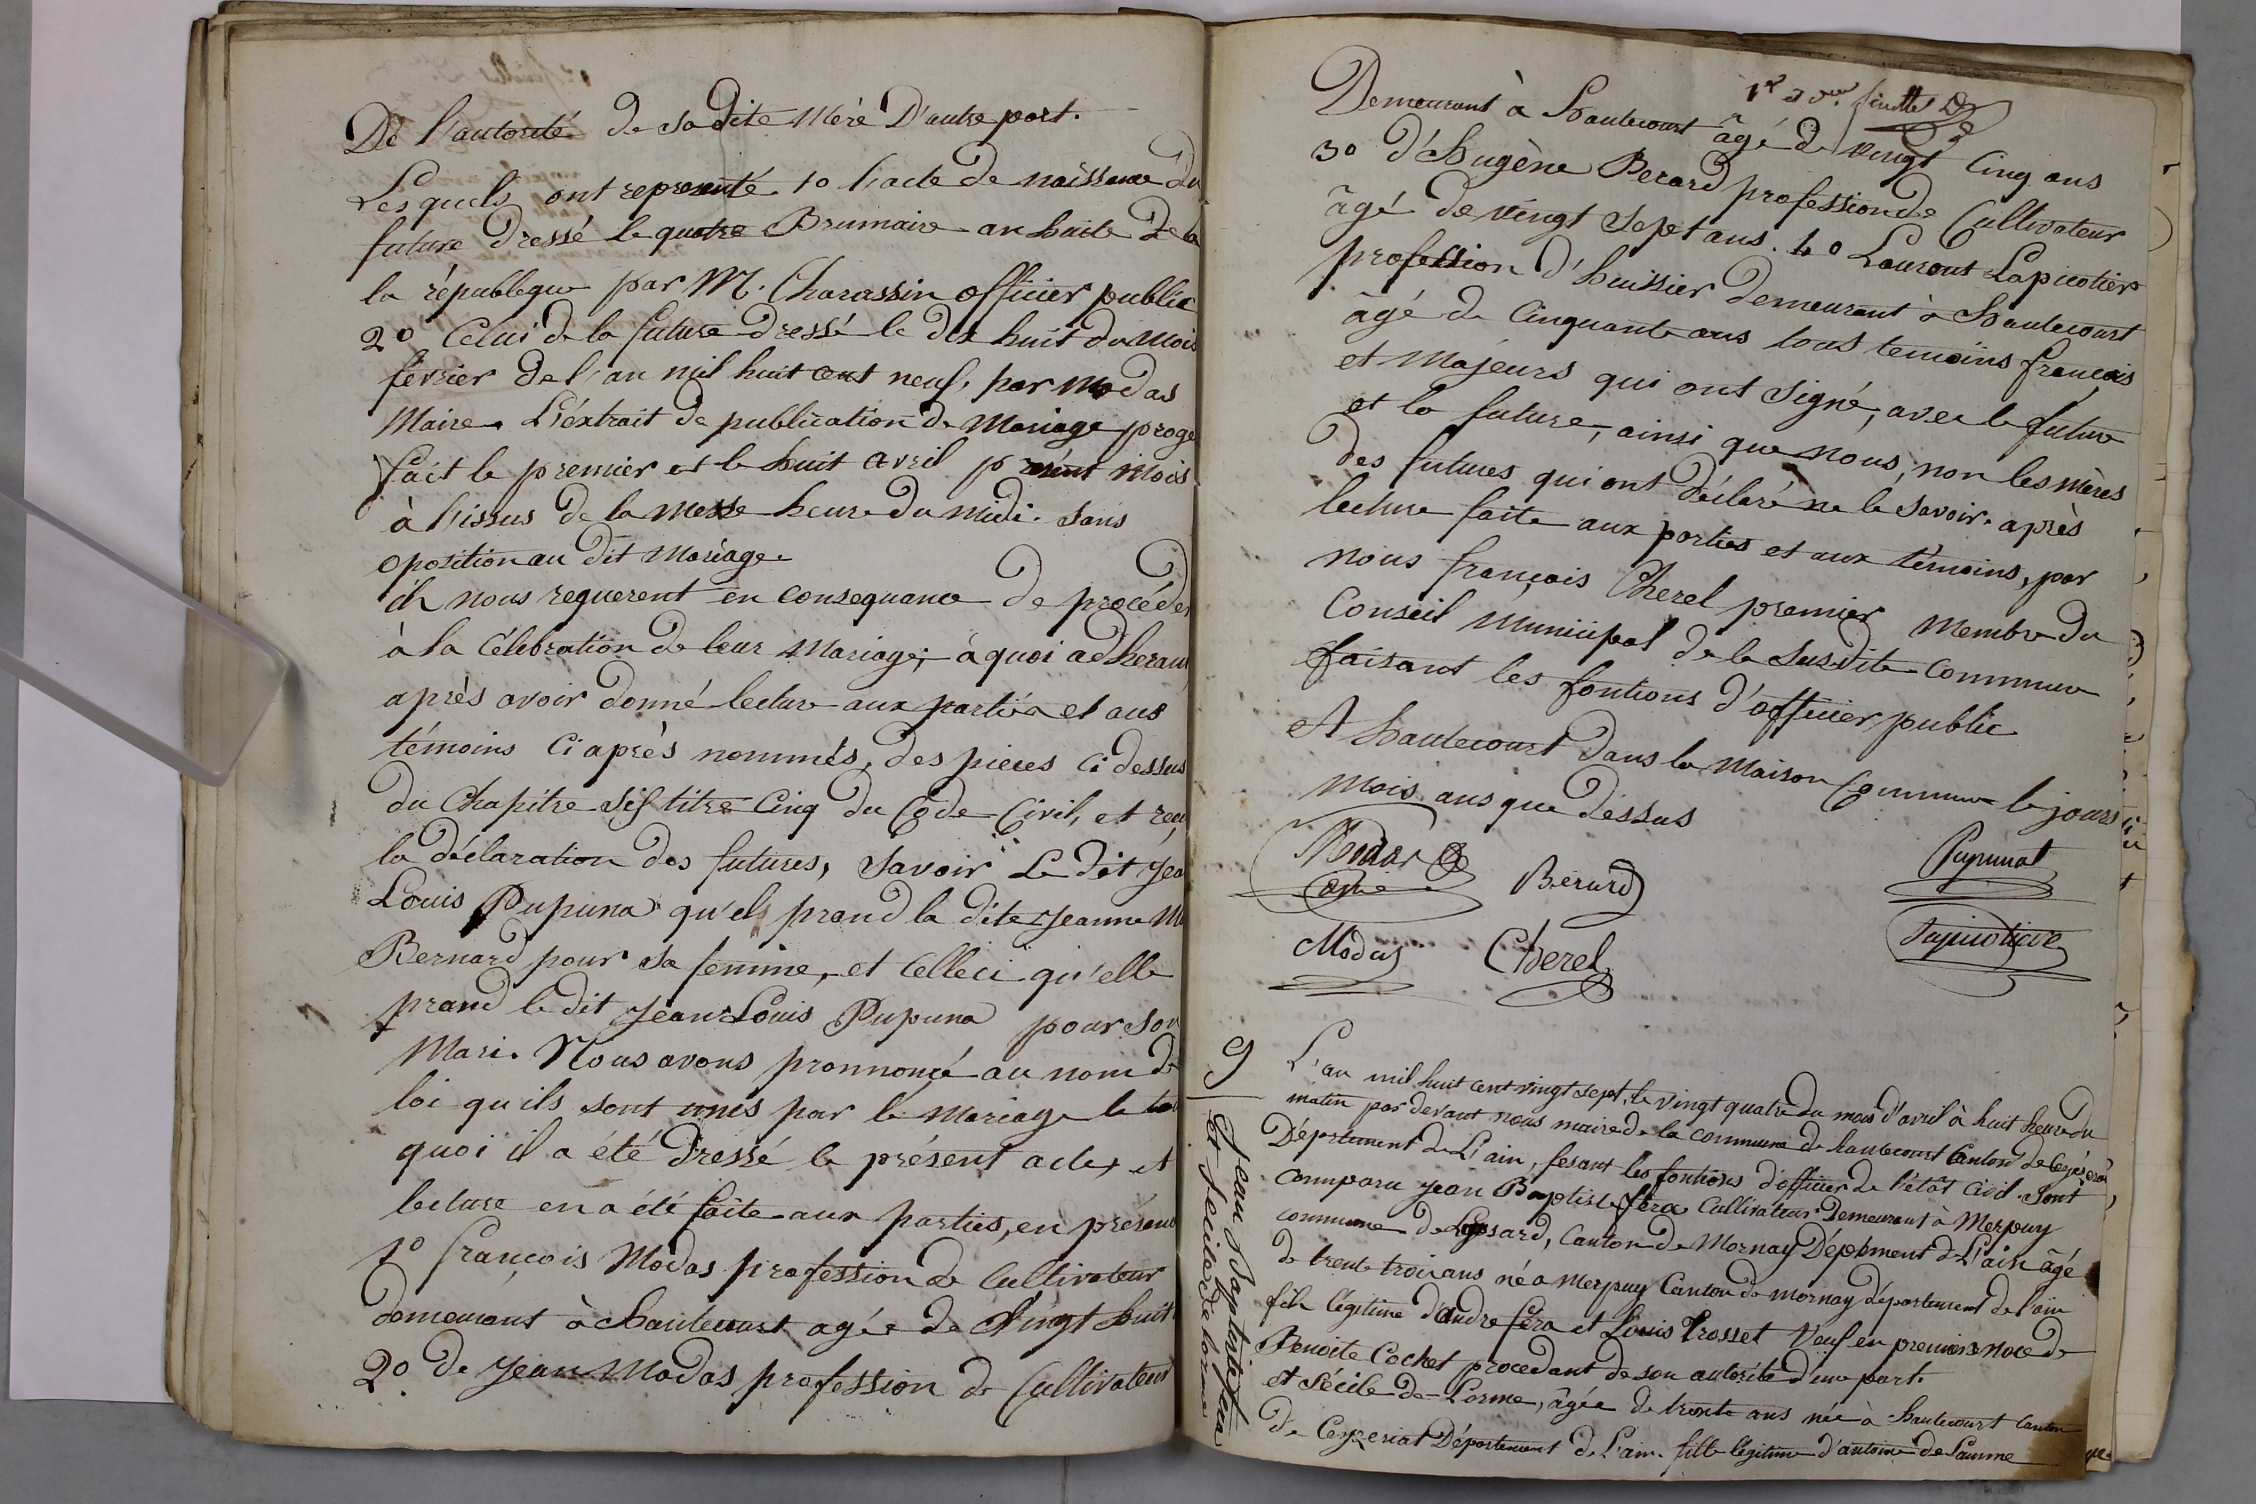 De l'autorité de sa dite Mère D'autre part.
Les quels ont representé 1o l'acte de naissance du
future dressé le quatre Brumaire an huite de la
la républeque par M. Charassin officier public
2o Celui de la future dressé le dix huit du mois
février de l'an mil huit cent neuf, par Modas
Maire. L'éxtrait de publication de Mariage proge
fait le premier et le huit avril présent mois
à l'issus de la Messe heure du midi. sans
oposition au dit Mariage.
ils nous requerent en consequance de procéder
à la Célébration de leur Mariage; à quoi adherant
après avoir donné lecture aux parties et aus
témoins Ci après nommés, des pieces Ci dessus
du Chapitre sis titre Cinq du Code Civil, et recu
la déclaration des futures, Savoir Le dit Jea
Louis Pupuna qu'els prand la dite Jeanne M
Bernard pour sa femme, et Celleci qu'elle
prand le dit Jean Louis Pupuna pour son
Mari. Nous avons pronnoncé au nom de
loi qu'ils sont unis par le Mariage le tou
quoi il a été Dressé le présent acte, et
lecture en a été faite aux parties, en présenc
1o françois Modas profession de Cultivateur
demeurant à hautecourt agée de Vingt huit
2o de Jean Modas profession de Cultivateur
1r et feuillet
Demeurant à hautecourt âgé de vingt Cinq ans
3o d'hugène Berard profession de Cultivateur
âgé de vingt sept ans. 4o Laurent Lapicotière
profession d'huissier demeurant à hautecourt
âgé de Cinquante ans tous temoins français
et Majeurs qui ont signé, avec le future
et la future, ainsi que nous, non les mères
des futures qui ont déclaré ne le savoir. après
lecture faite aux parties et aux témoins, par
nous françois Cherel premier Membre du
Conseil Municipal de la susdite Commune
faisant les fontions d'officier public
A hautecourt dans la Maison Commune le jours
Mois, ans que dessus
Modas Berard Pupunat
Modas Cherel Lapicotiere
9
Jean Baptiste fera
et Secile de lorme
L'an mil huit cent vingt sept, le vingt quatre du mois d'avril à huit heure du
matin par devant nous maire de la commune de hautecourt Canton de Ceyseriat
Département de L'ain, fesant les fontions d'officier de l'état civil. Sont
comparu Jean Baptiste fera Cultivateur Demeurant à Merpuy
commune de Leyssard, Canton de Mornay Département de L'ain âgé
de trente trois ans né a Merpuy Canton de mornay département de l'ain
fils légitime d'andre fera et Louis Trosset Veuf en premiere noce de
Benoite Cochet procedant de son autorité d'une part.
et Sécile de Lorme, âgée de trente ans née à hautecourt Canton
de Ceyzeriat Département de L'ain. fille légitime d'antoine de Laurme